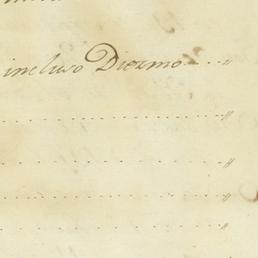 incluso Diezmo . . . . "
. . . . . . . . . . . . . . . . . . . . "
. . . . . . . . . . . . . . . . . . . . "
. . . . . . . . . . . . . . . . . . . . "
. . . . . . . . . . . . . . . . . . . . "